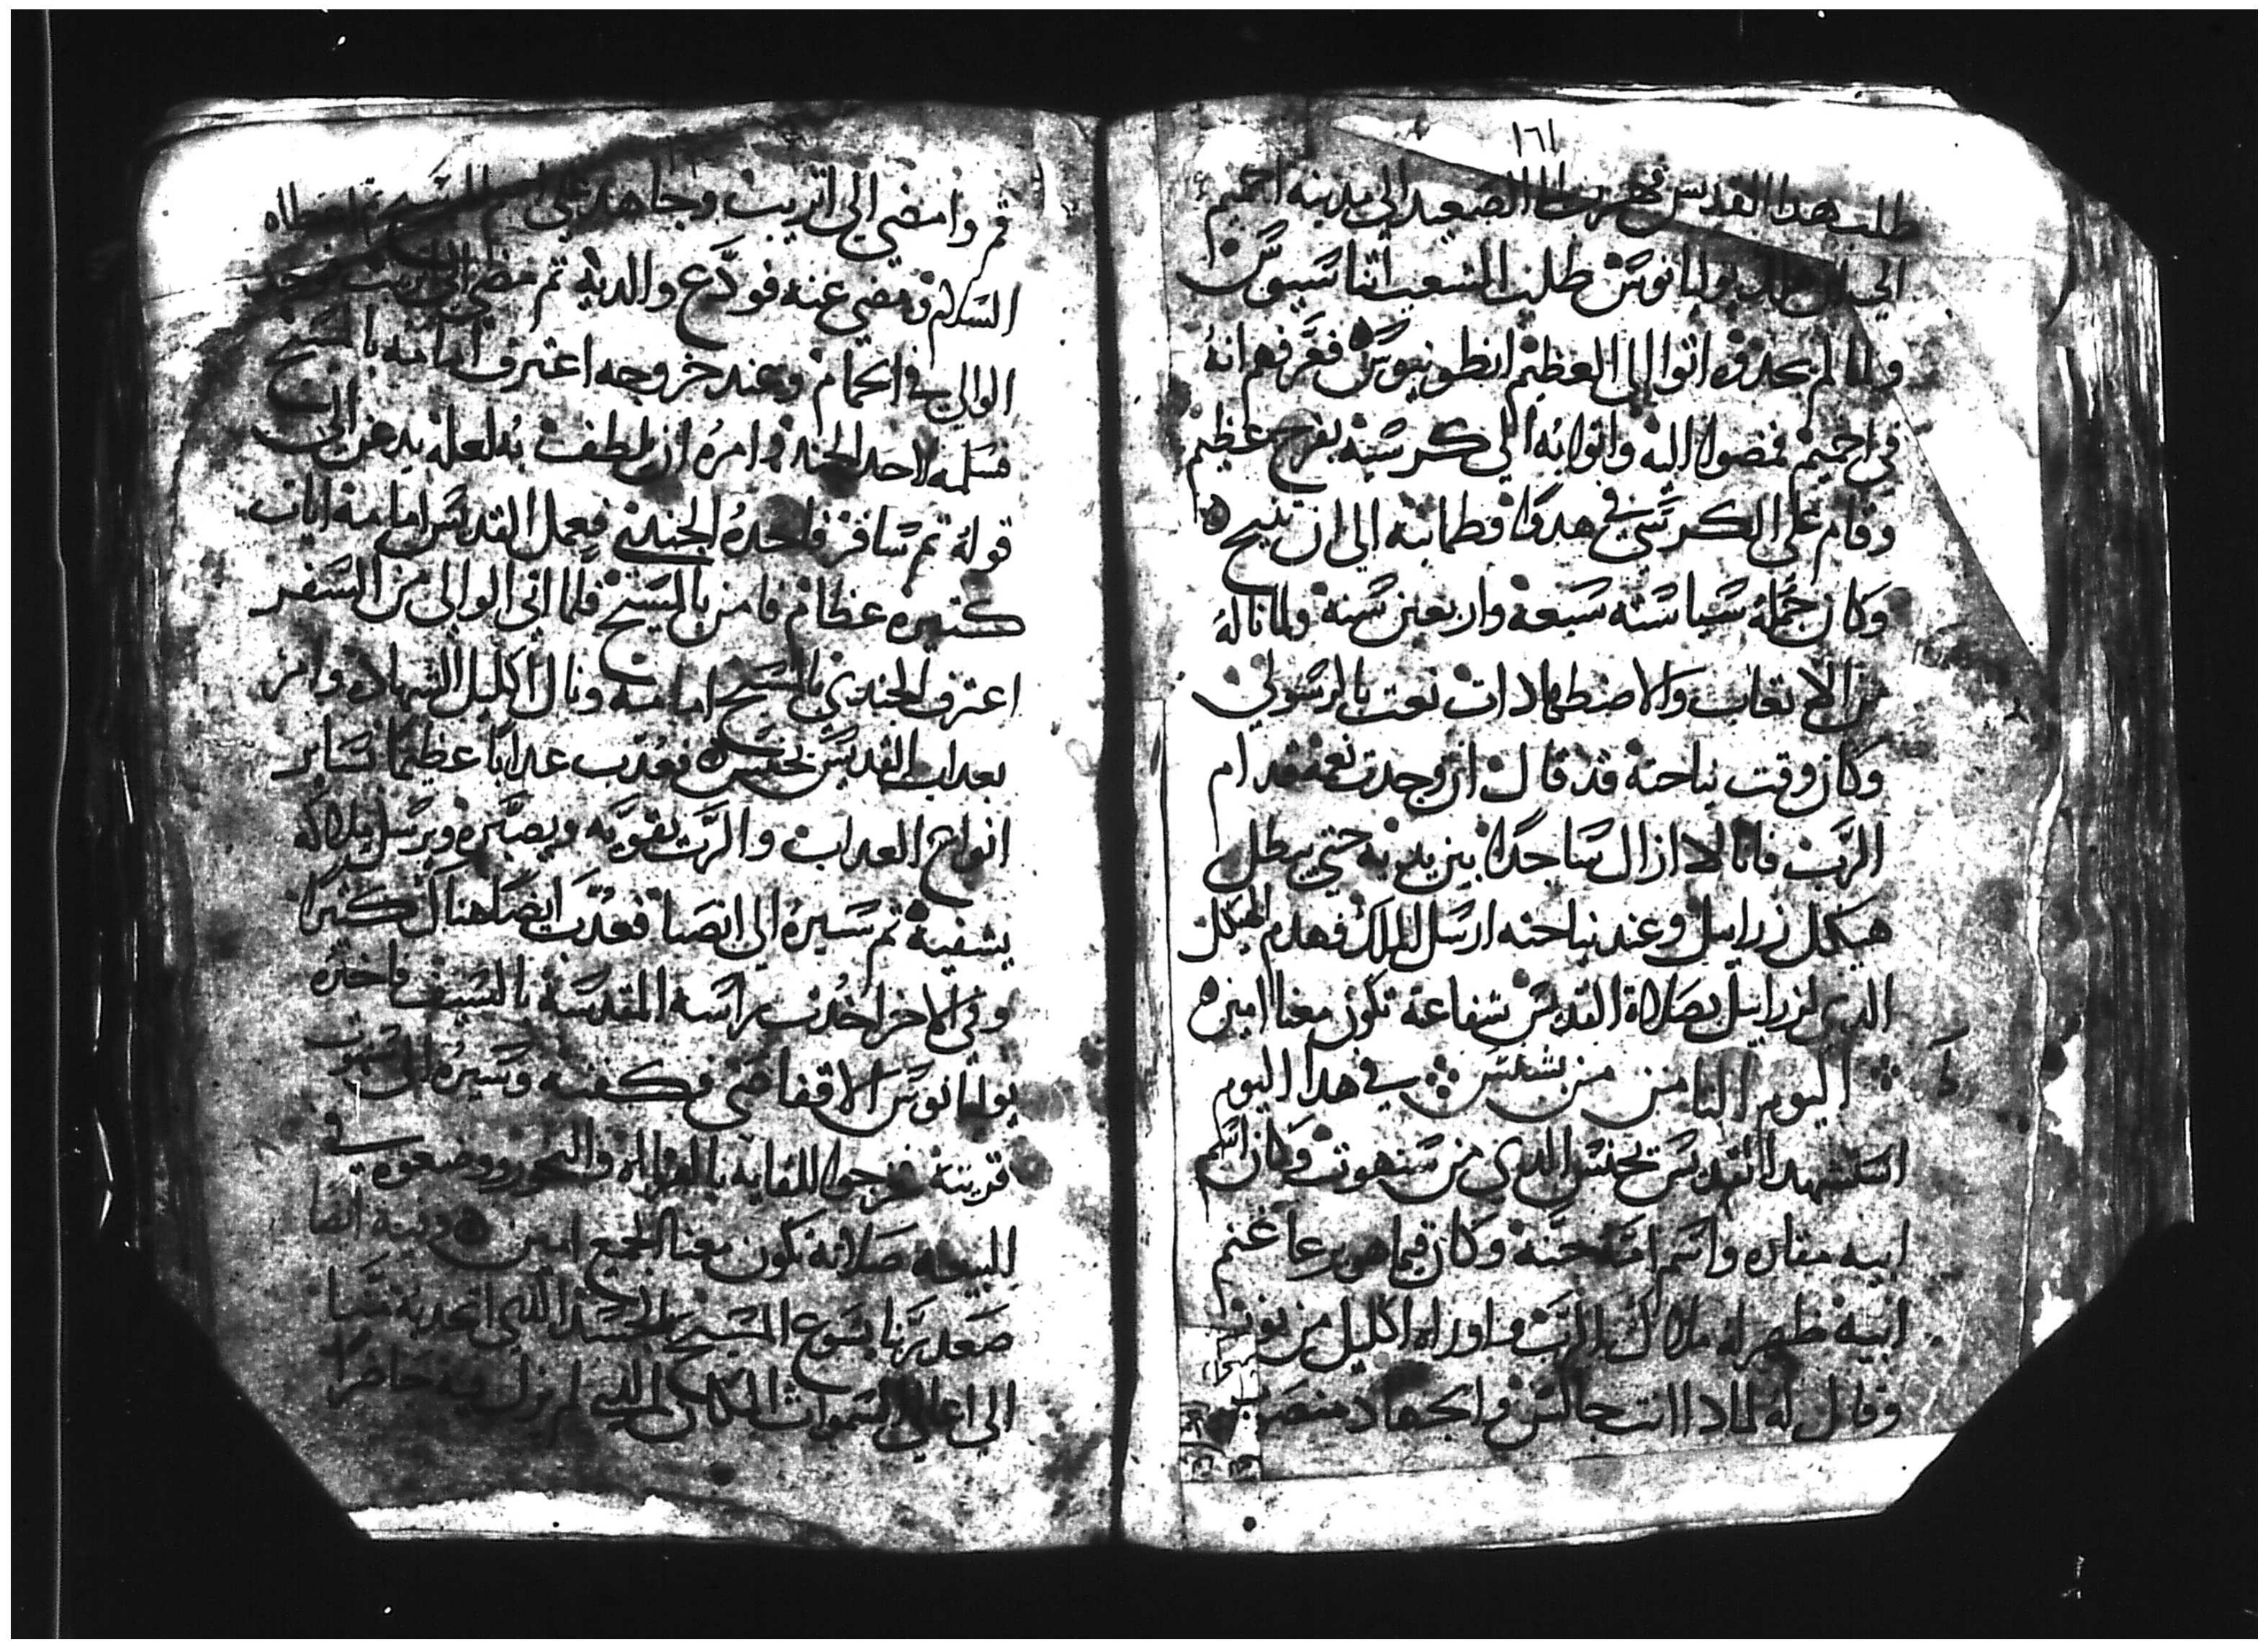 ١٦١
طلب هدا القديس فهرب الي الصعيد الي مدينة اخميم
الي ان هلك يوليانوس طلب الشعب اثناسيوس
ولما لم يجدوه اتوا الى العظيم انطونيوس فعرفهم انه
في اخميم فمضوا اليه واتوا به الي كرسيه بفرح عظيم
وقام علي الكرسي في هدوا وطمانينه الي ان تنيح
وكان جملة سياسته سبعه واربعين سنه ولما ناله
من الاتعاب والاضطهادات نعت بالرسولي
وكان وقت نياحته قد قال ان وجدت نعمه قدام
الرب فانا لا ازال ساجدا بين يديه حتي يبطل
هيكل زراييل وعند نياحته ارسل الملاك فهدم الهيكل
الدى لزراييل بصلاة القديس شفاعته تكون معنا امين
اليوم الثامن من بشنس في هدا اليوم
استشهد القديس يحنس الدي من سنهوت وكان اسم
ابيه مقاره واسم امه حنه وكان فيما هو يرعا غنم
ابيه ظهر له ملاك الرب واوراه اكليل من نور
وقال له لمادا انت جالس والجهاد منصوب
قم وامضي الى اتريب وجاهد علي اسم المسيح ثم اعطاه
السلام ومضي عنه فودع والديه ثم مضي الي اتريب فوجد
الوالي في الحمام وعند خروجه اعترف امامه بالمسيح
فسلمه لاحد الجند وامره ان يلطف به لعله يدعن الى
قوله ثم سافر فاخده الجندي فعمل القديس امامه ايات
كتيره عظام فامن بالمسيح فلما اتي الوالي من السفر
اعترف الجندي بالمسيح امامه ونال اكليل الشهاده وامر
بعداب القديس يحنس فعدب عدابا عظيما بساير
انواع العداب والرب يقويه ويصبره ويرسل ملاكه
يشفيه ثم سيره الى انصنا فعدب ايضا هناك كتيرا
وفي الاخر اخدت راسه المقدسه بالسيف فاخده
يوليانوس الاقفاصي وكفنه وسيره الى سنهوت
قريته فخرجوا للقايه بالقراه والبخور ووضعوه في
البيعه صلاته تكون معنا الجميع امين وفيه ايضا
صعد ربنا يسوع المسيح بالجسد الدي اتحد به سيا
الي اعالي السموات المكان الدي لم يزل فيه حاضرا